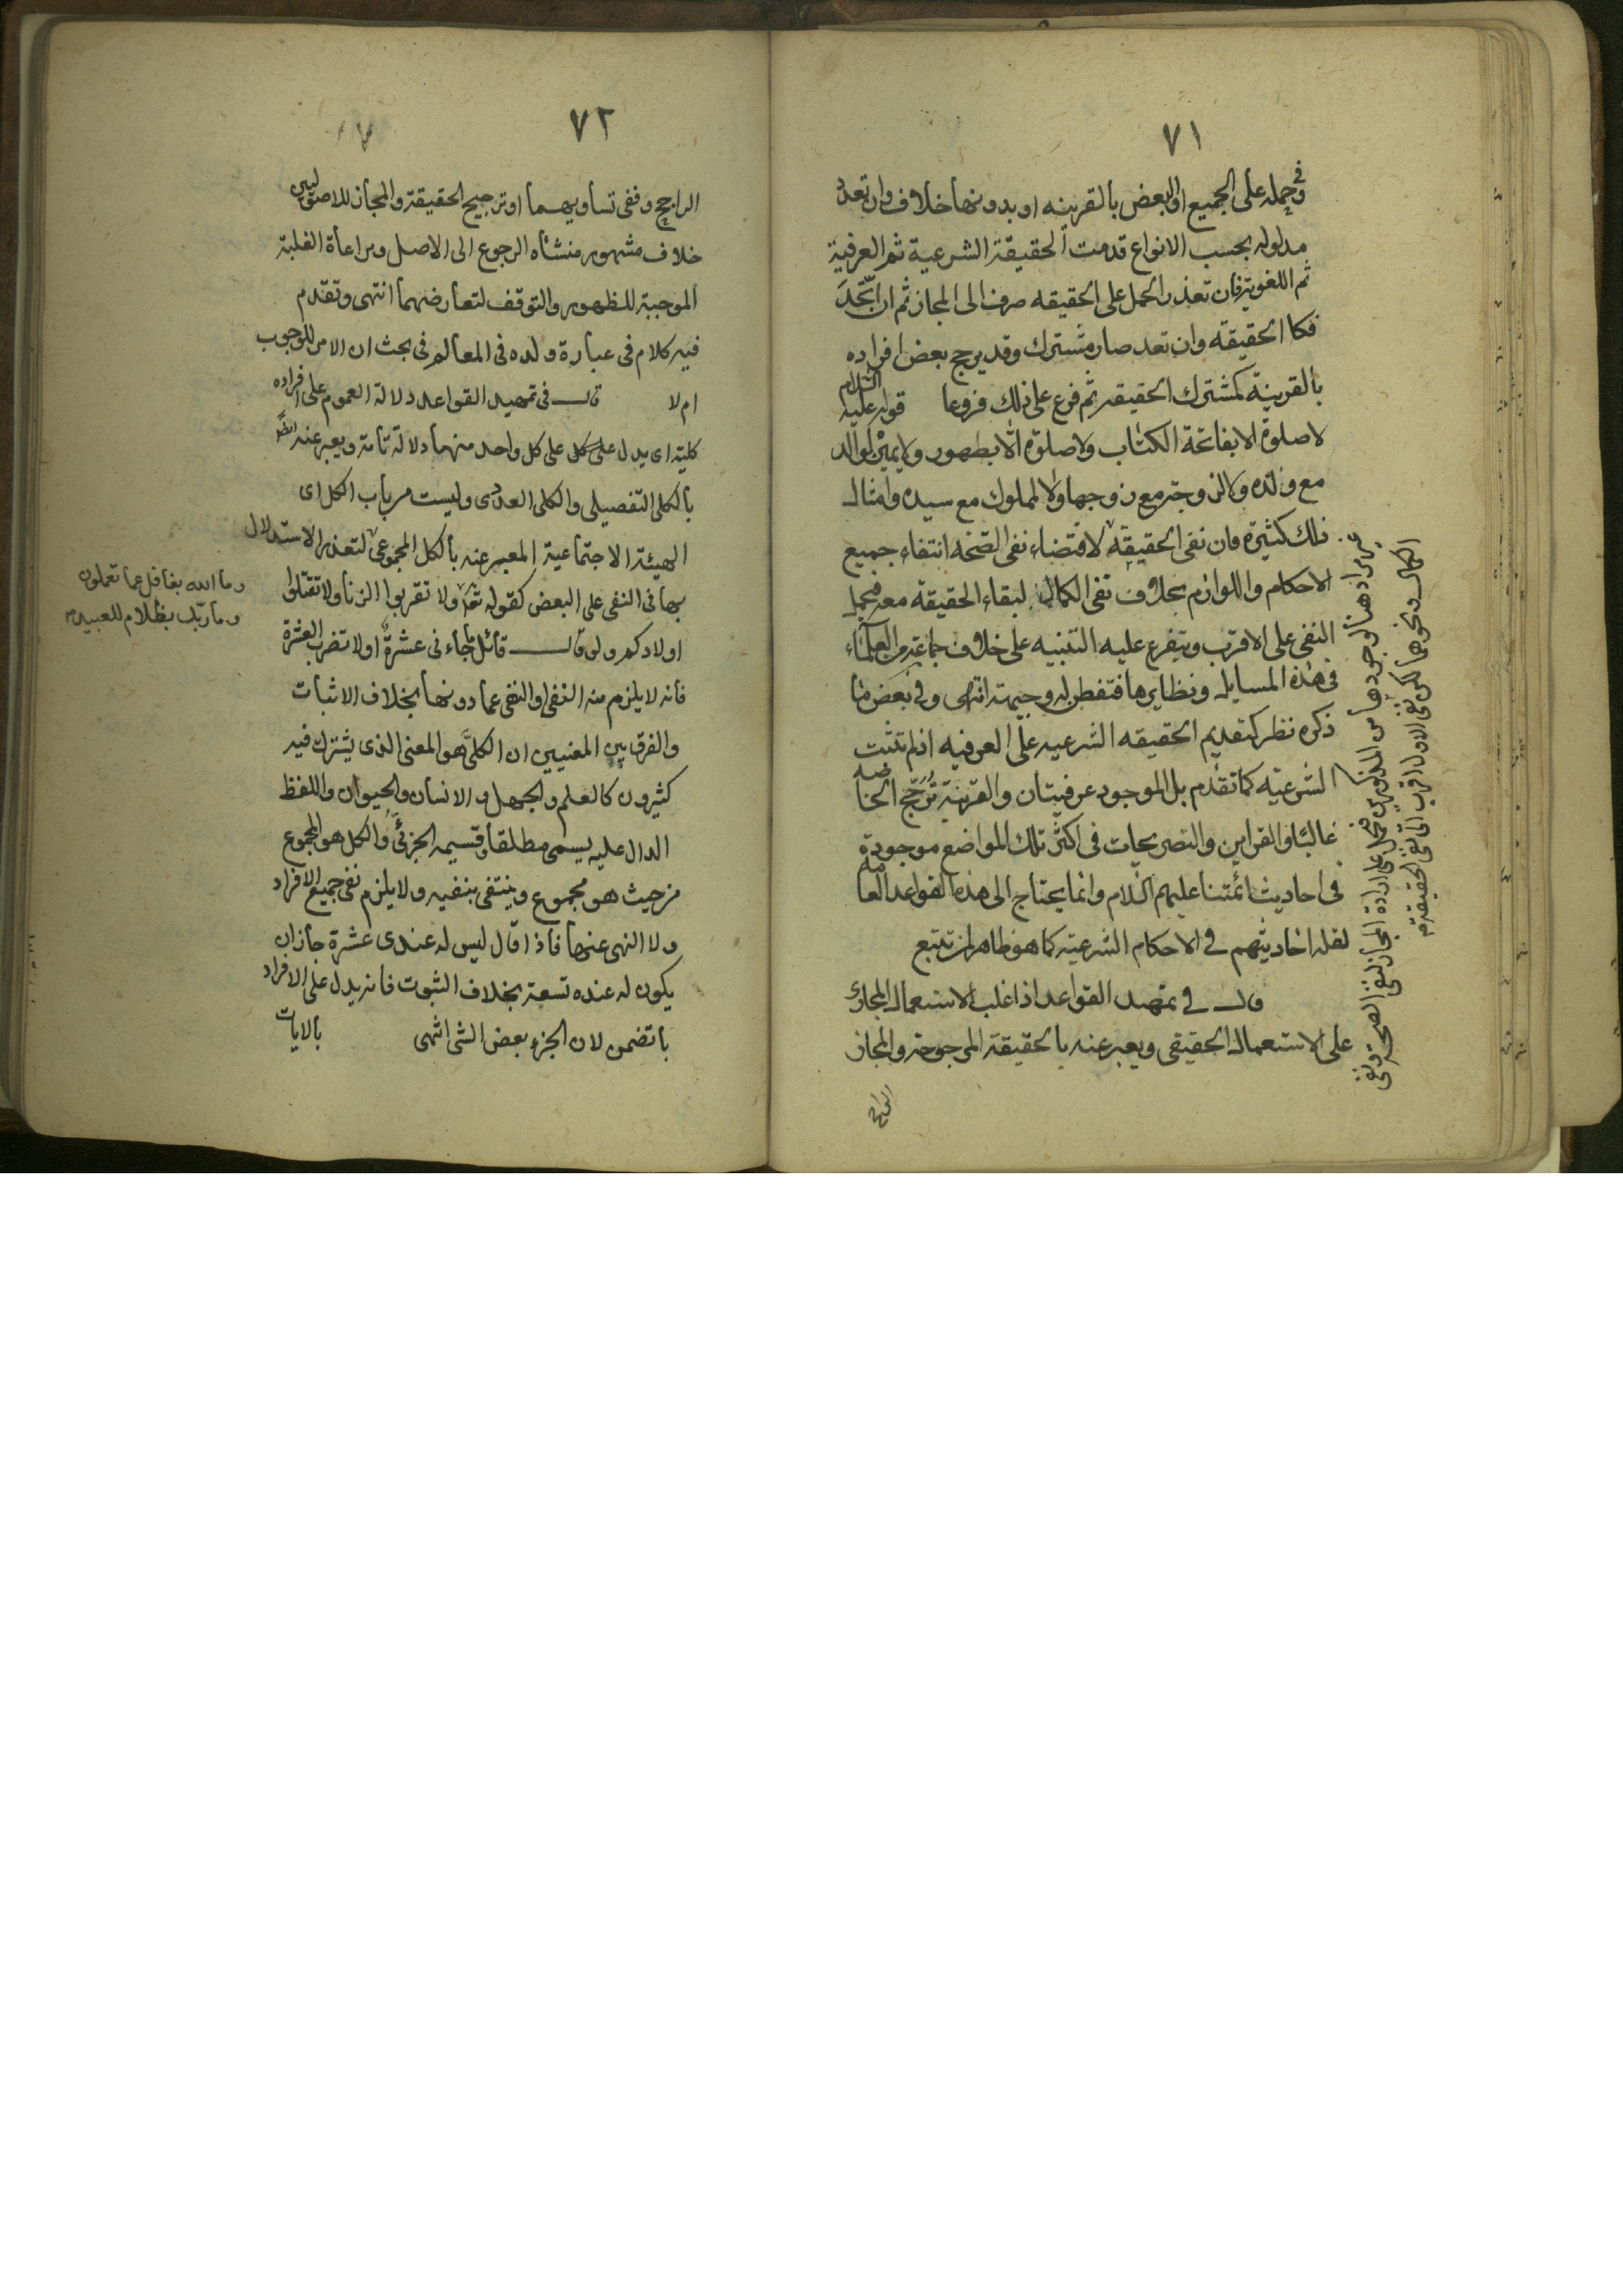 ٧١
وفي حمله على الجميع او البعض بالقرينه او بدونها خلاف وان تعدد
مدلوله بحسب الانواع قدمت الحقيقة الشرعية ثم العرفية
ثم اللغوية فان تعذر الحمل على الحقيقه صرف الى المجاز ثم ان اتّحد
فكا الحقيقة وان تعدد صار مشترك وقد يرجح بعض افراده
بالقرينة كمشترك الحقيقة ثم فرع على ذلك فروعا قوله عليه السّلام
لا صلوة الا بفاتحة الكتاب ولا صلوة الّا بطهور ولا يمين لوالد
مع ولده ولا لزوجة مع زوجها ولا لمملوك مع سيده وامثال
ذلك كثيرة فان نفى الحقيقة لاقتضاء نفى الصّحة انتفاء جميع
الاحكام واللوازم بخلاف نفى الكمال لبقاء الحقيقة معه فيحمل
النفى على الاقرب ويتفرع عليه التنبيه على خلاف جماعة من العلماء
فى هذه المسايل ونظايرها فتفطن له وجيهته انتهى وفي بعض ما
ذكره نظر كتقديم الحقيقه الشرعيه على العرفيه اذ لم تثبت
الشرعيّه كما تقدم بل الموجود عرفيتان والقرينة تُرَجّح الخاصه
غالبًا والقراين والتصريحات فى اكثر تلك المواضع موجودة
فى احاديث ائمّتنا عليهم السّلام وانما يحتاج الى هذه القواعد العامه
لقله احاديثهم في الاحكام الشرعيّة كما هو ظاهر لمن تتبع
قال في تمهيد القواعد اذا غلب الاستعمال المجازى
على الاستعمال الحقيقى ويعبر عنه بالحقيقة المرجوحة والمجاز
الراجح
غير مراد هنا لوجودها من المذكورين فيحمل على ارادة المجاز لنفى الصحة ونفى
الكمال ونحوهما لكن نفى الاول اقرب الى نفى الحقيقة م
٧٢
الراجح وففى تساويهما او ترجيح الحقيقة والمجاز للاصوليين
خلاف مشهور منشأه الرجوع الى الاصل ومراعاة الغلبة
الموجبة للظهور والتوقف لتعارضهما انتهى وتقدم
فيه كلام فى عبارة ولده فى المعالم فى بحث ان الامر للوجوب
ام لا قال فى تمهيد القواعد دلالة العموم على افراده
كلية اى يدل على كل على كل واحد منهما دلالة تامة ويعبر عنه ايضًا
بالكلى التفصيلى والكلى العددى وليست من باب الكل اى
الهيئة الاجتماعية المعبر عنه بالكل المجموعى لتعذر الاستدلال
بها فى النفى على البعض كقوله تعا ولا تقربوا الزنا ولا تقتلوا
اولادكم ولو قال قائل ما جاء نى عشرة او لا تضرب العشرة
فانه لا يلزم منه النفى او النفى عما دونها بخلاف الاثبات
والفرق بين المعنيين ان الكلّى هو المعنى الذى يشترك فيه
كثيرون كالعلم والجهل والانسان والحيوان واللفظ
الدال عليه يسمى مطلقا وقسيمه الجزئى والكل هو المجموع
من حيث هو مجموع وينتفى بنفيه ولا يلزم نفى جميع الافراد
ولا النهى عنها فاذا قال ليس له عندى عشرة جاز ان
يكون له عنده تسعة بخلاف الثبوت فانه يدل على الافراد
باتضمن لان الجزء بعض الشى انتهى بالايات
وما الله بغافل عما تعملون
وما ربّك بظلام للعبيد م